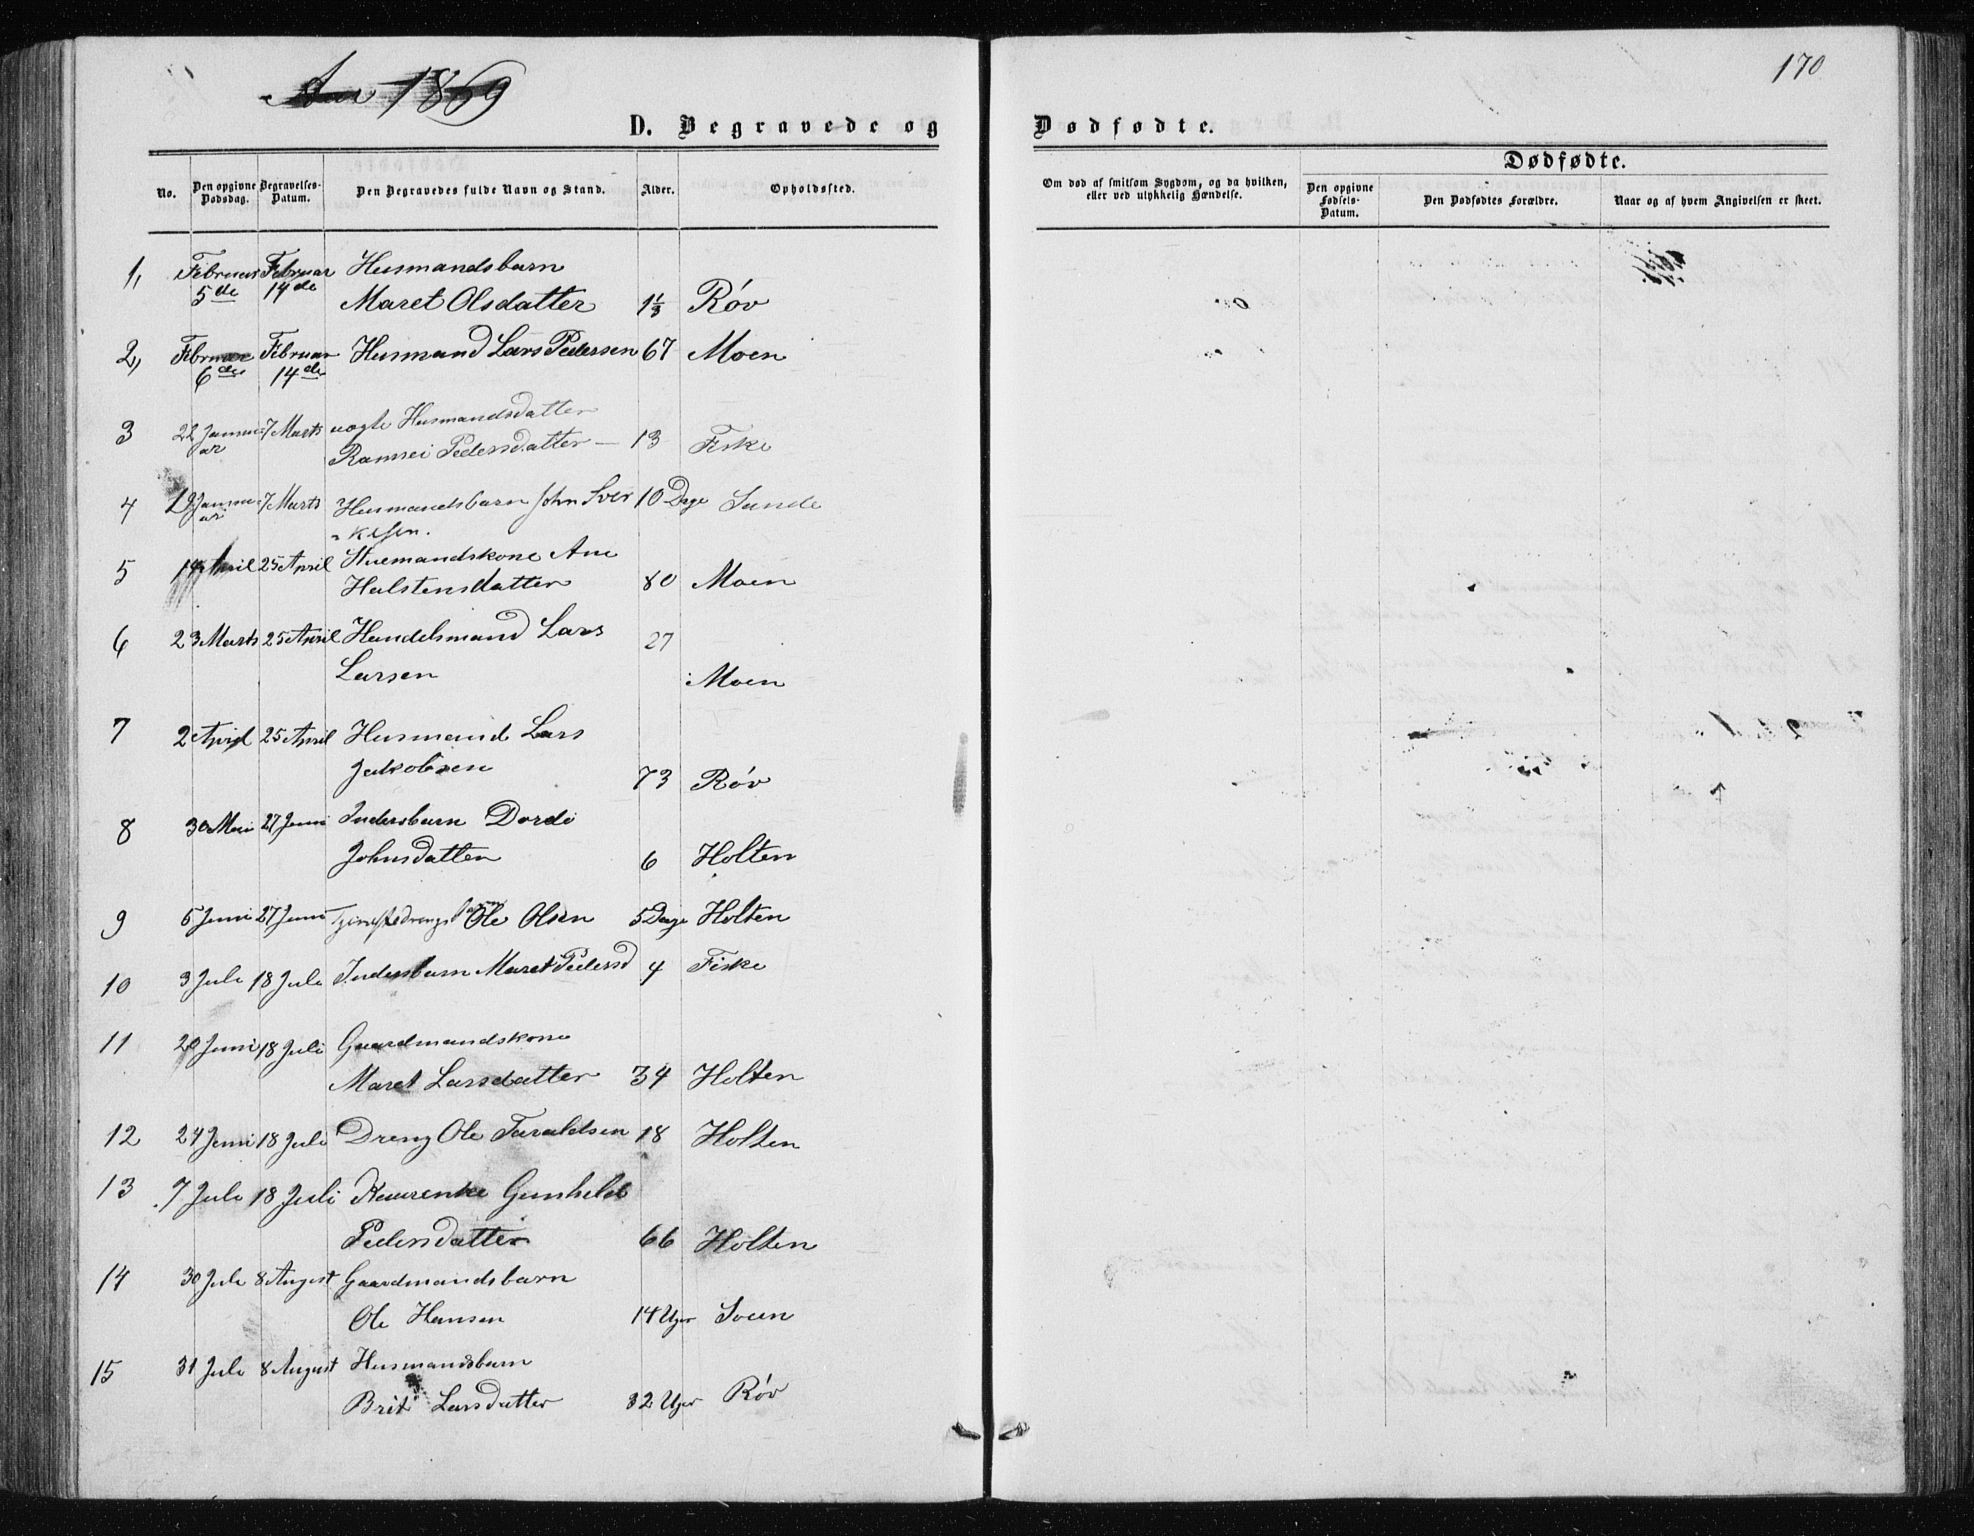 170
Aar 1869
D. Begravede og Dødfødte.
Dødfødte.
No.
Den opgivne Dødsdag.
Begravelses-Datum.
Den Begravedes fulde Navn og Stand.
Alder.
Opholdssted.
Om død af smitsom Sygdom, og da hvilken, eller ved ulykkelig Hændelse.
Den opgivne Fødsels-Datum.
Den Dødfødtes Forældre.
Naar og af hvem Angivelsen er skeet.
1, Februar 5de Februar 14de Husmandsbarn
Maret Olsdatter 1 1/3 Røv
2, Februar 6de Februar 14de Husmand Lars Pedersen 67 Moen
3 22 Januar 7 Marts uægte Husmandsdatter
Rannei Pedersdatter — 13 Fiske
4 19 Januar 7 Marts Husmandsbarn John Sver 10 Dage Sande
"kesen.
5 14 April 25 April Husmandskone Ane
Halstensdatter 80 Moen
6 23 Marts 25 April Handelsmand Lars 27
Larsen Moen
7 2 April 25 April Husmand Lars
Jakobsen 73 Røv
8 30 Mai 27 Juni Indersbarn Dordi
Johnsdatter 6 Holten
9 5 Juni 27 Juni Tjenestedrengsbarn Ole Olsen 5 Dage Holten
10 3 Juli 18 Juli Indersbarn Maret Pedersd 4 Fiske
11 20 Juni 18 Juli Gaardmandskone
Maret Larsdatter 34 Holten
12 24 Juni 18 Juli Dreng Ole Taraldsen 18 Holten
13 7 Juli 18 Juli Gunhild
Pedersdatter 66 Holten
14 30 Juli 8 August Gaardmandsbarn
Ole Hansen 14 Uger Soen
15 31 Juli 8 August Husmandsbarn
Brit Larsdatter 32 Uger Røv